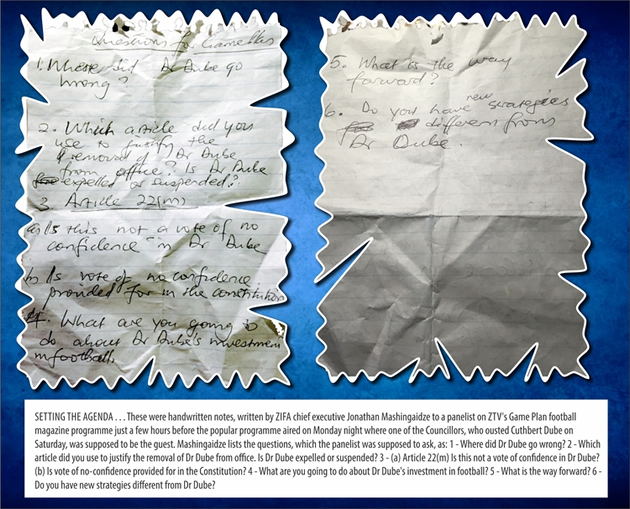 Questions for Gamellas
1. Where did Dr Dube go
wrong?
2. Which article did you
use to justify the
removal of Dr Dube
from office? Is Dr Dube
expelled or suspended?
3. Article 22(m)
a) Is this not a vote of no
confidence in Dr Dube
b) Is vote of no confidence
provided for in the constitution
4. What are you going to
do about Dr Dube's investment
in football.
5. What is the way
forward?
6. Do you have new strategies
different from
Dr Dube.
SETTING THE AGENDA . . . These were handwritten notes, written by ZIFA chief executive Jonathan Mashingaidze to a panelist on ZTV's Game Plan football
magazine programme just a few hours before the popular programme aired on Monday night where one of the Councillors, who ousted Cuthbert Dube on
Saturday, was supposed to be the guest. Mashingaidze lists the questions, which the panelist was supposed to ask, as: 1 - Where did Dr Dube go wrong? 2 - Which
article did you use to justify the removal of Dr Dube from office. Is Dr Dube expelled or suspended? 3 - (a) Article 22(m) Is this not a vote of confidence in Dr Dube?
(b) Is vote of no-confidence provided for in the Constitution? 4 - What are you going to do about Dr Dube's investment in football? 5 - What is the way forward? 6 -
Do you have new strategies different from Dr Dube?